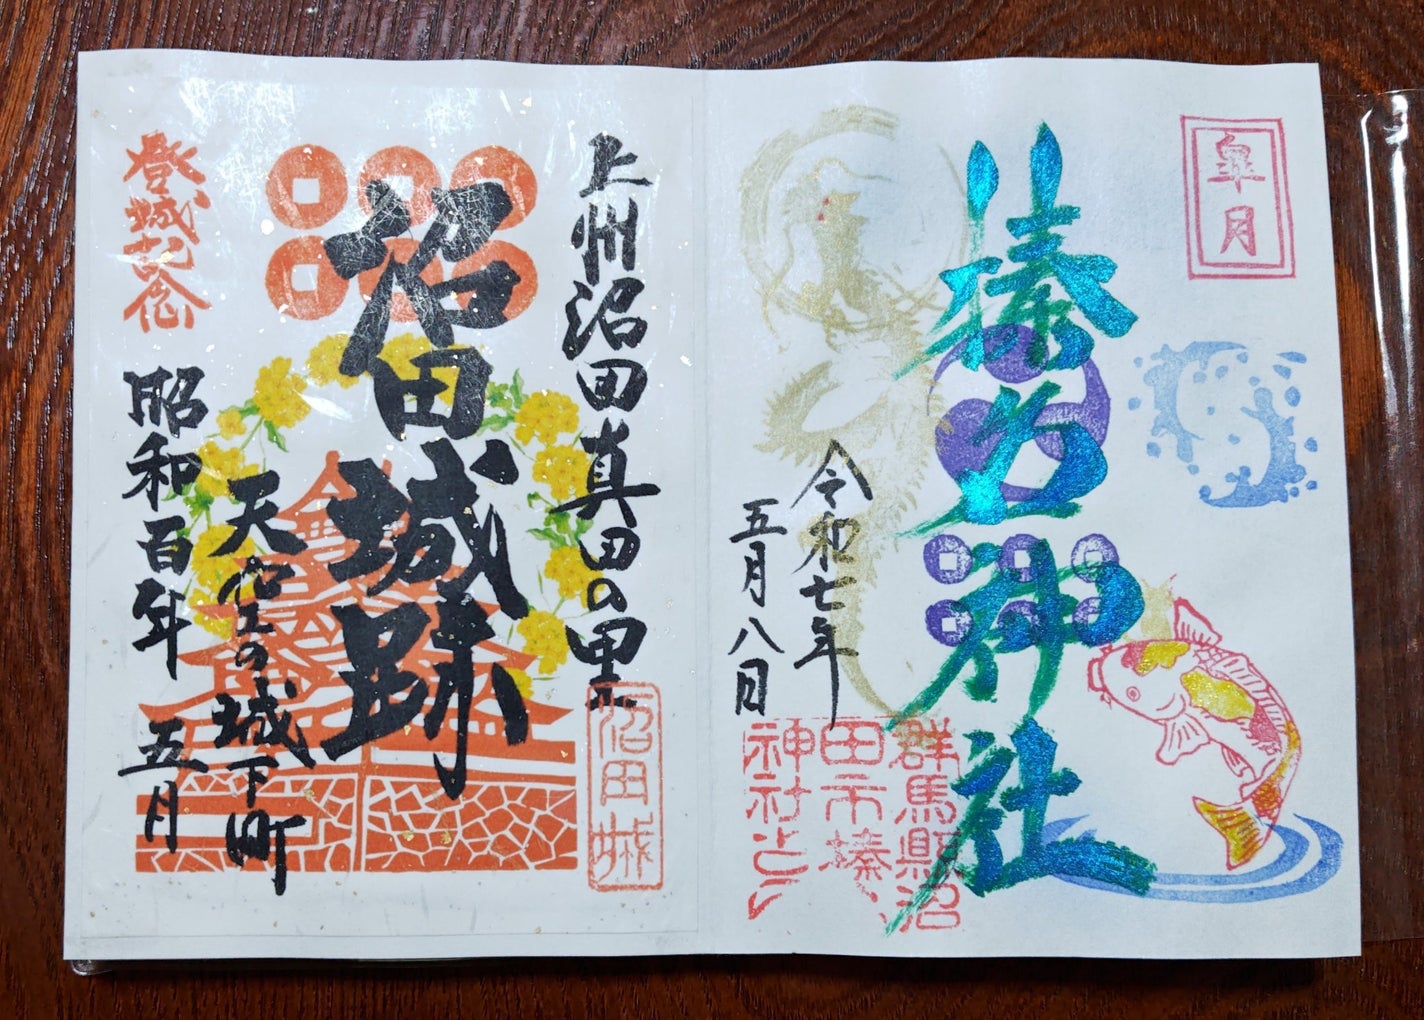 皐月
榛名神社
令和七年
五月八日
群馬縣沼
田市榛名
神社之印
上州沼田真田の里
沼田城
沼田城跡
天空の城下町
登城記念
昭和百年 五月